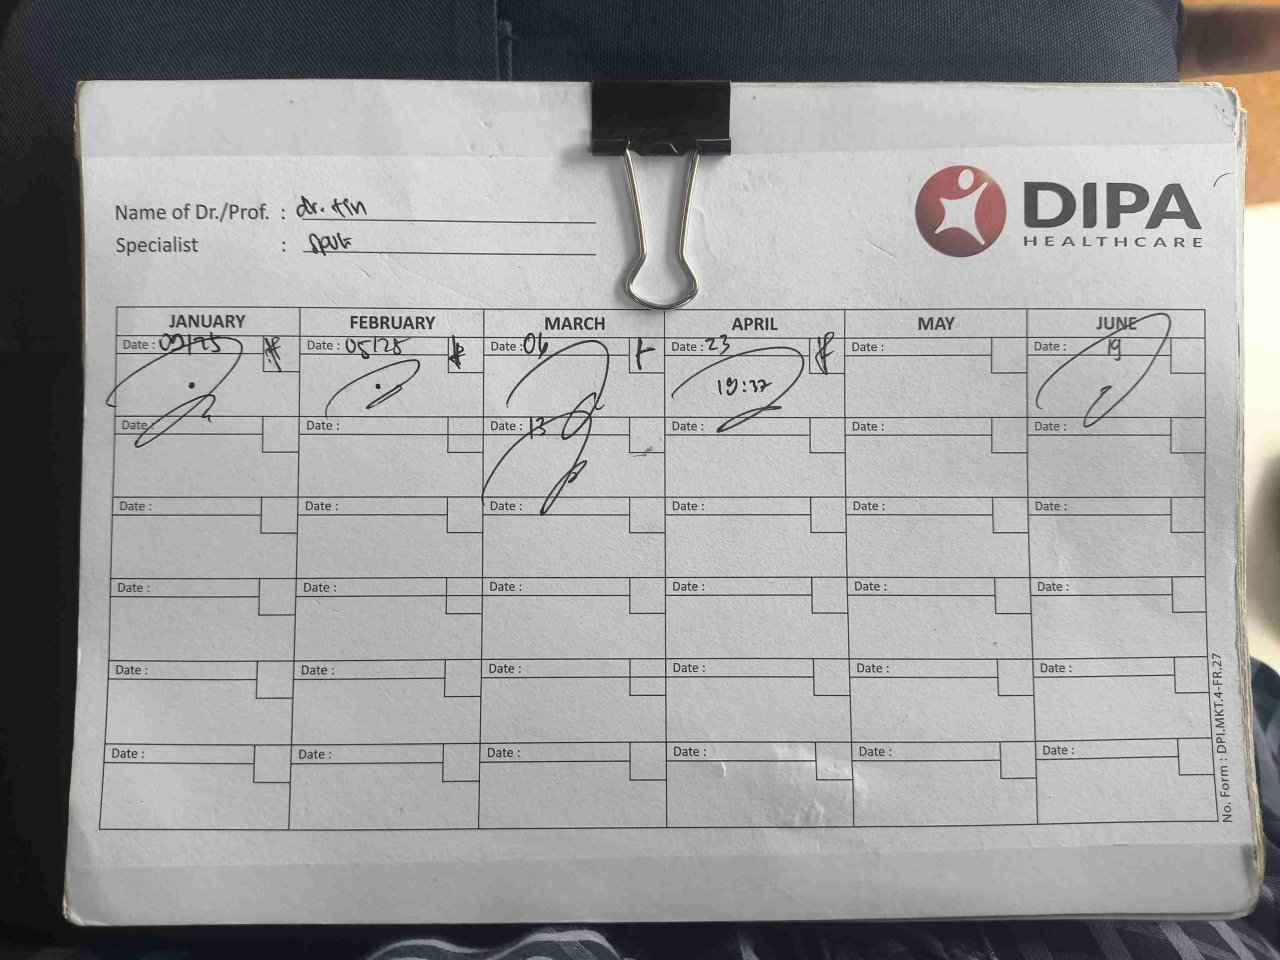 DIPA
HEALTHCARE
Name of Dr./Prof. : dr. tin
Specialist :
JANUARY FEBRUARY MARCH APRIL MAY JUNE
Date : 09/25 Date : 05/25 Date : 06 Date : 23 Date : Date : 19
19:37
Date : Date : Date : 13 Date : Date : Date :
Date : Date : Date : Date : Date : Date :
Date : Date : Date : Date : Date : Date :
Date : Date : Date : Date : Date : Date :
Date : Date : Date : Date : Date : Date :
No. Form : DPI.MKT.4-FR.27